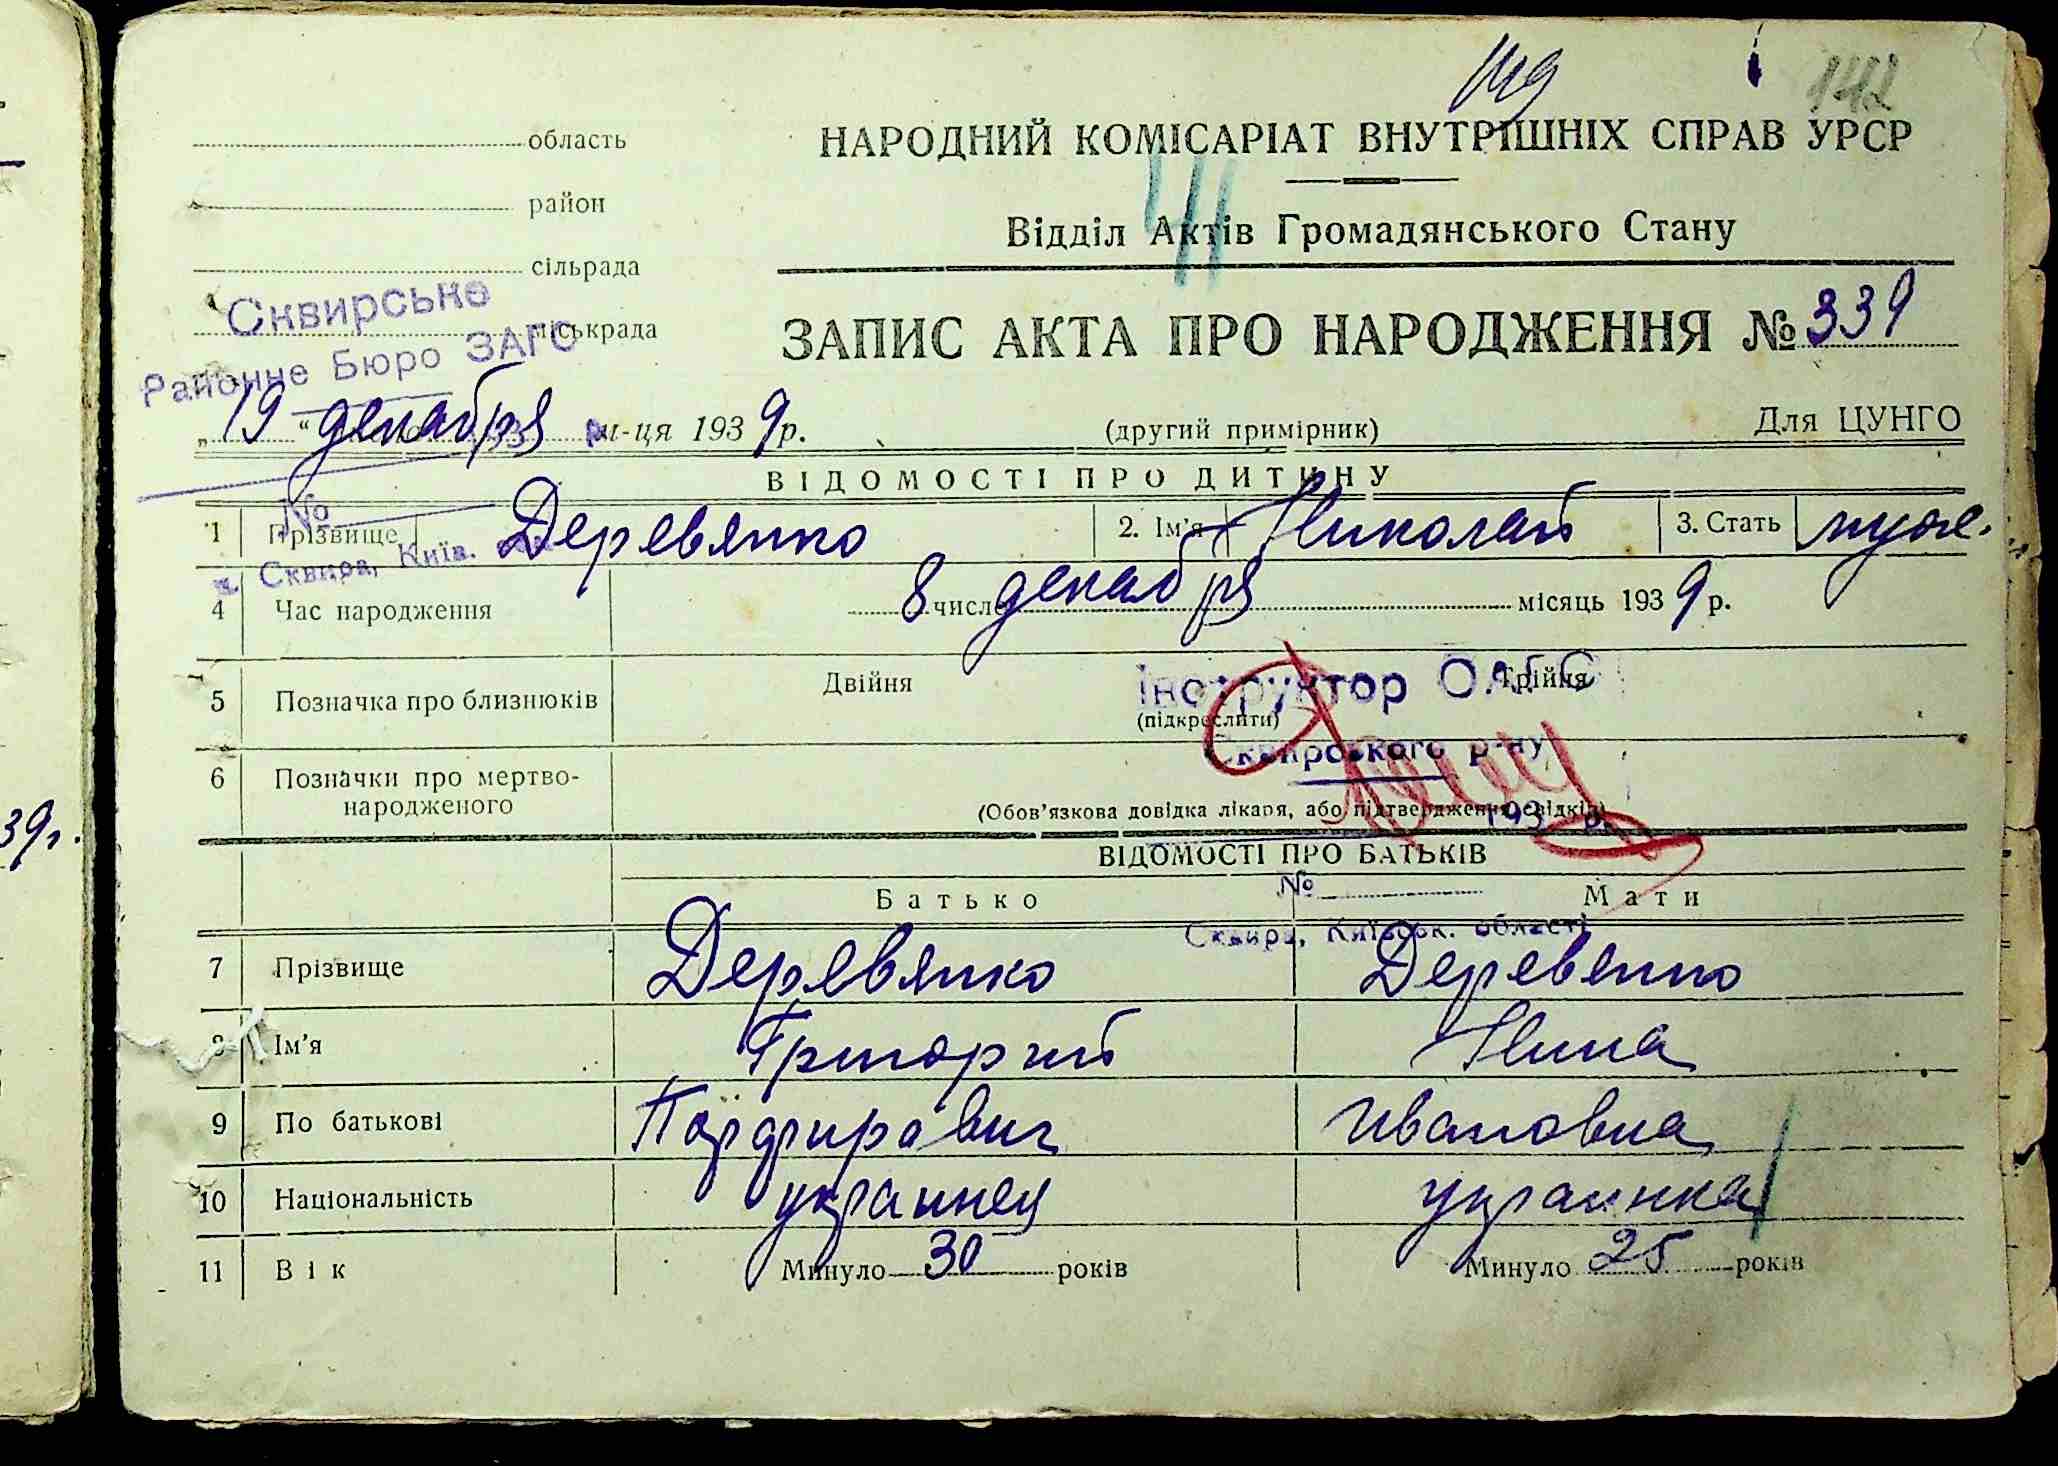 142
область
НАРОДНИЙ КОМІСАРІАТ ВНУТРІШНІХ СПРАВ УРСР
район
Відділ Актів Громадянського Стану
41
сільрада
Сквирське
міськрада
Районне Бюро ЗАГС
ЗАПИС АКТА ПРО НАРОДЖЕННЯ № 339
„19“ декабря м-ця 1939 р. (другий примірник) Для ЦУНГО
ВІДОМОСТІ ПРО ДИТИНУ
№
1 Прізвище Деревянко 2. Ім'я Николай 3. Стать муж.
м. Сквира, Київ.
4 Час народження 8 число декабря місяць 1939 р.
5 Позначка про близнюків Двійня Трійня
(підкреслити)
Інструктор О.А.Г.С
Сквирського р-ну
6 Позначки про мертво-
народженого
(Обов'язкова довідка лікаря, або підтвердження свідків)
193
ВІДОМОСТІ ПРО БАТЬКІВ
№
Батько Мати
Сквира, Київськ. області
7 Прізвище Деревянко Деревянко
8 Ім'я Григорий Нина
9 По батькові Порфирович Ивановна
10 Національність украинец украинка
11 Вік Минуло 30 років Минуло 25 років
39 г.